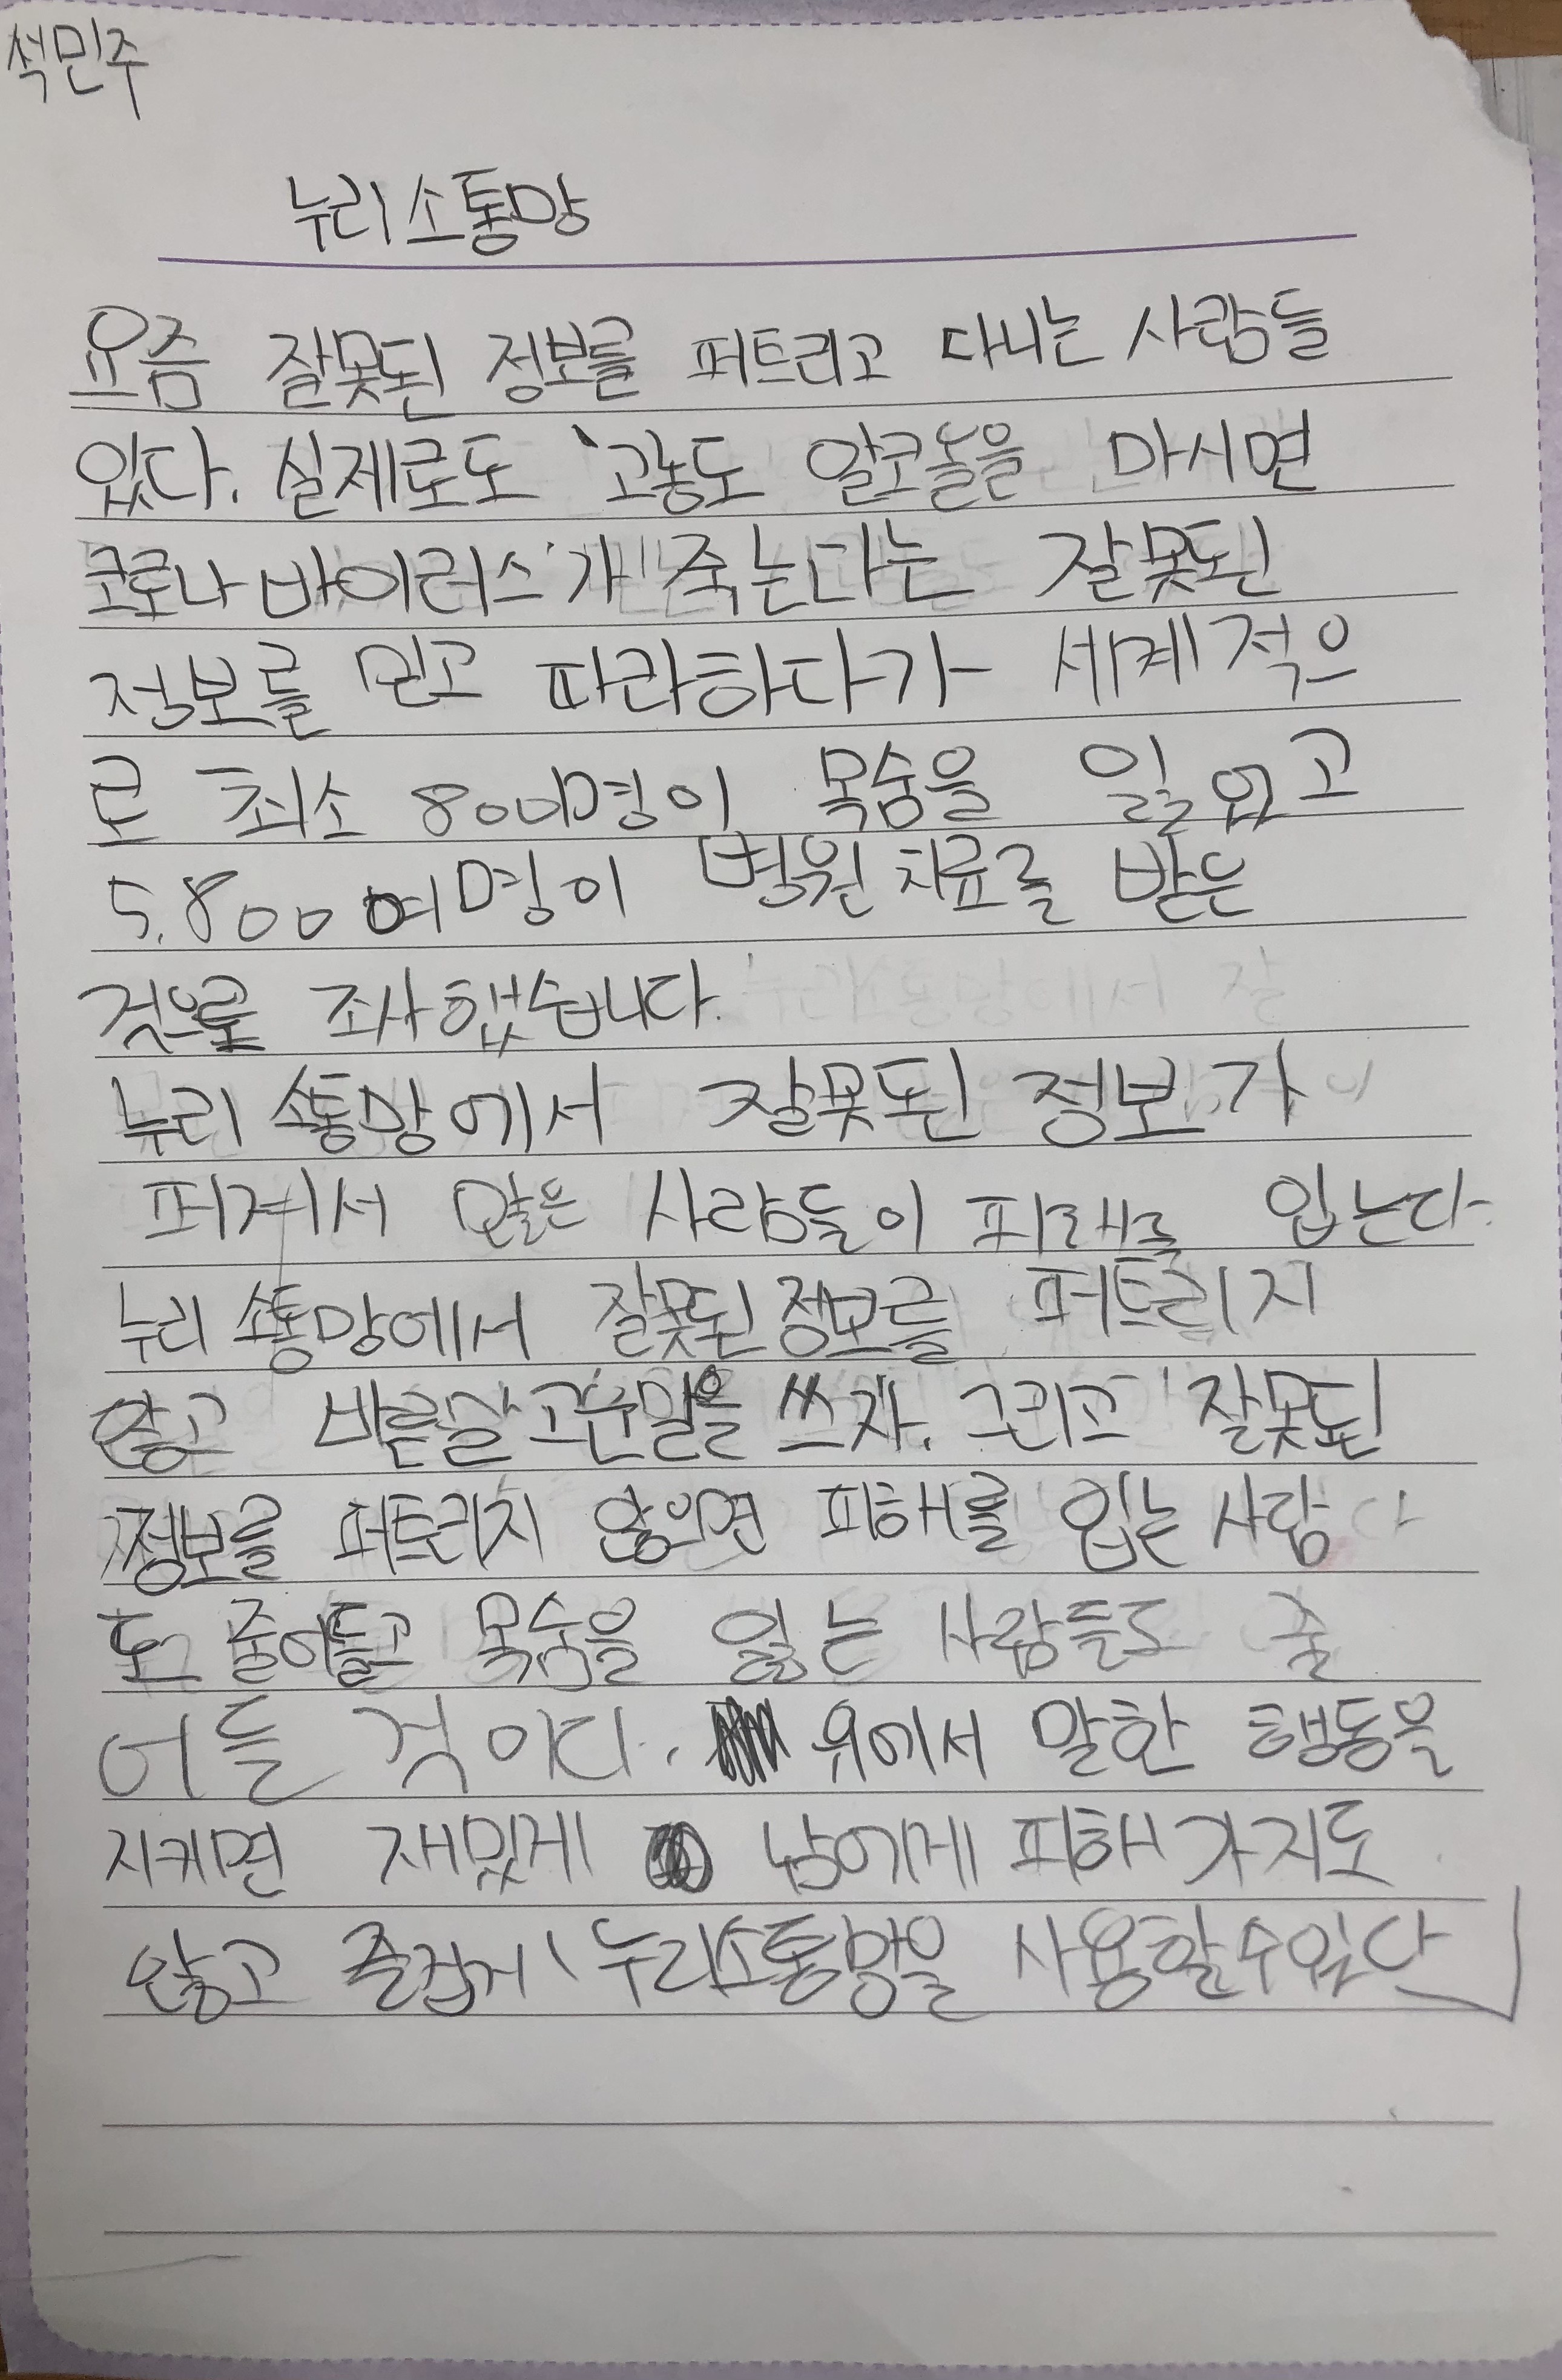 석민주
누리소통망
요즘 잘못된 정보를 퍼트리고 다니는 사람들
있다. 실제로도 '고농도 알코올을 마시면
코로나 바이러스'가 죽는다는 잘못된
정보를 믿고 따라하다가 세계적으
로 최소 800여명이 목숨을 잃었고
5,800여명이 병원 치료를 받은
것으로 조사했습니다.
누리 소통망에서 잘못된 정보가
퍼져서 많은 사람들이 피해를 입는다.
누리 소통망에서 잘못된 정보를 퍼트리지
않고 바른말 고운말을 쓰자. 그리고 잘못된
정보를 퍼트리지 않으면 피해를 입는 사람
도 줄어들고 목숨을 잃는 사람들도 줄
어들 것이다. 위에서 말한 행동을
지키면 재밌게 남에게 피해 가지도
않고 즐겁게 누리소통망을 사용할수있다